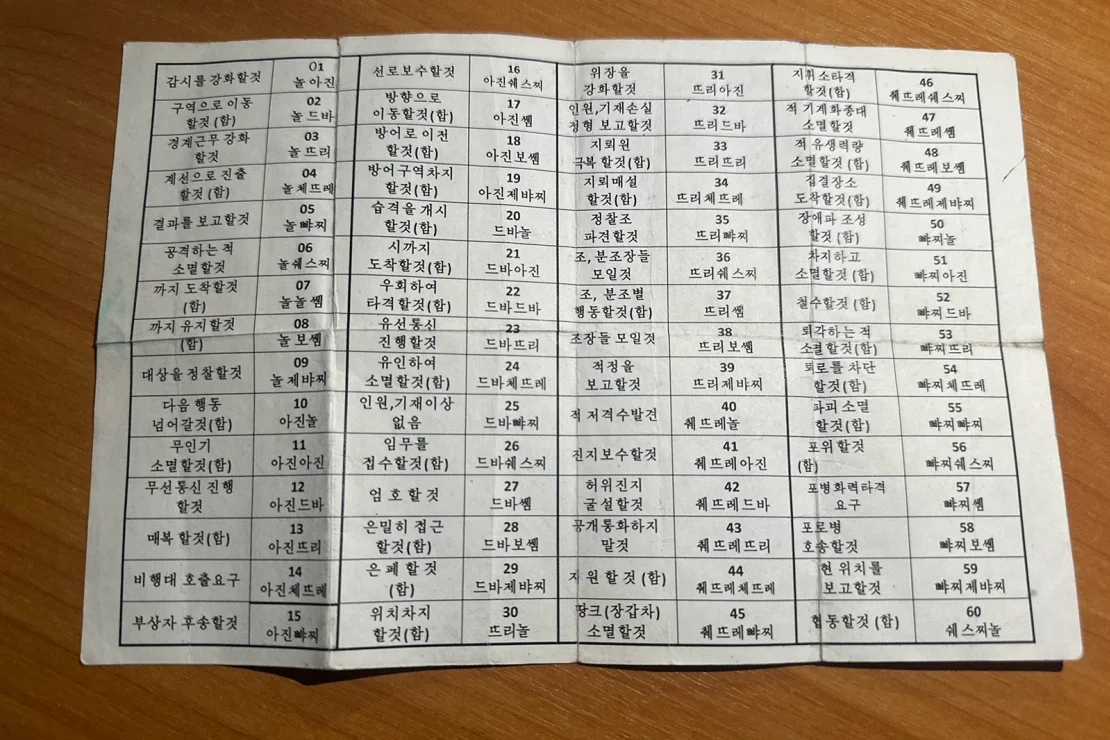 감시를 강화할것
01
놀아진
구역으로 이동
할것(함)
02
놀드바
경계근무 강화
할것
03
놀뜨리
계선으로 진출
할것(함)
04
놀체뜨레
결과를 보고할것
05
놀뺘찌
공격하는 적
소멸할것
06
놀쉐스찌
까지 도착할것
(함)
07
놀놀쎔
까지 유지할것
(함)
08
놀보쎔
대상을 정찰할것
09
놀제뱌찌
다음 행동
넘어갈것(함)
10
아진놀
무인기
소멸할것(함)
11
아진아진
무선통신 진행
할것
12
아진드바
매복 할것(함)
13
아진뜨리
비행대 호출요구
14
아진체뜨레
부상자 후송할것
15
아진뺘찌
선로보수할것
16
아진쉐스찌
방향으로
이동할것(함)
17
아진쎔
방어로 이전
할것(함)
18
아진보쎔
방어구역차지
할것(함)
19
아진제뱌찌
습격을 개시
할것(함)
20
드바놀
시까지
도착할것(함)
21
드바아진
우회하여
타격할것(함)
22
드바드바
유선통신
진행할것
23
드바뜨리
유인하여
소멸할것(함)
24
드바체뜨레
인원,기재이상
없음
25
드바뺘찌
임무를
접수할것(함)
26
드바쉐스찌
엄호 할것
27
드바쎔
은밀히 접근
할것(함)
28
드바보쎔
은폐할것
(함)
29
드바제뱌찌
위치차지
할것(함)
30
뜨리놀
위장을
강화할것
31
뜨리아진
인원,기재손실
정형 보고할것
32
뜨리드바
지뢰원
극복할것(함)
33
뜨리뜨리
지뢰매설
할것(함)
34
뜨리체뜨레
정찰조
파견할것
35
뜨리뺘찌
조, 분조장들
모일것
36
뜨리쉐스찌
조, 분조별
행동할것(함)
37
뜨리쎔
조장들 모일것
38
뜨리보쎔
적정을
보고할것
39
뜨리제뱌찌
적 저격수발견
40
췌뜨레놀
진지보수할것
41
췌뜨레아진
허위진지
굴설할것
42
췌뜨레드바
공개통화하지
말것
43
췌뜨레뜨리
지원할것 (함)
44
췌뜨레체뜨레
땅크(장갑차)
소멸할것
45
췌뜨레뺘찌
지휘소타격
할것(함)
46
췌뜨레쉐스찌
적 기계화종대
소멸할것
47
췌뜨레쎔
적 유생력량
소멸할것 (함)
48
췌뜨레보쎔
집결장소
도착할것(함)
49
췌뜨레제뱌찌
장애파 조성
할것 (함)
50
뺘찌놀
차지하고
소멸할것 (함)
51
뺘찌아진
철수할것 (함)
52
뺘찌드바
퇴각하는 적
소멸할것(함)
53
뺘찌뜨리
퇴로를 차단
할것(함)
54
뺘찌체뜨레
파괴 소멸
할것(함)
55
뺘찌뺘찌
포위할것
(함)
56
뺘찌쉐스찌
포병화력타격
요구
57
뺘찌쎔
포로병
호송할것
58
뺘찌보쎔
현 위치를
보고할것
59
뺘찌제뱌찌
협동할것 (함)
60
쉐스찌놀